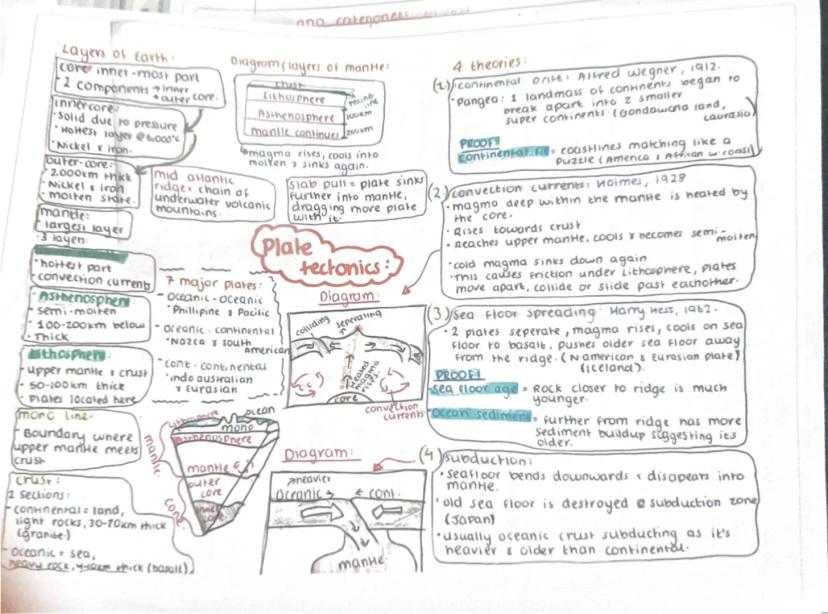 and categories
Layers of Earth:
core inner-most part
2 components → inner
outer core.
inner core:
- Solid due to pressure
- Hottest layer @ 6,000°c
- Nickel & iron.
outer-core:
- 2,000km thick
- Nickel & iron
- molten state.
mantle:
- largest layer
- 3 layers:
- hottest part
- convection current
Asthenosphere:
- semi-molten
- 100-200km below
- Thick
Lithosphere:
- upper mantle & crust
- 50-100km thick
- Plates located here
mono line:
- Boundary where
upper mantle meets
crust
crust:
2 sections:
- continental = land,
light rocks, 30-70km thick
(granite)
- oceanic = sea,
heavy rock, 4-10km thick (basalt)
Diagram/layers of mantle:
crust
Lithosphere
Asthenosphere
100km
mantle continues
200km
magma rises, cools into
molten & sinks again.
mid atlantic
ridge = chain of
underwater volcanic
mountains.
Slab pull = plate sinks
further into mantle,
dragging more plate
with it.
Plate
tectonics:
7 major plates:
- oceanic-oceanic
Phillipine & Pacific
- oceanic-continental
Nazca & south
American
- cont-continental
indo australian
& Eurasian
ocean
mono
Asthenosphere
mantle
outer
core
inner
core
mantle
core
Diagram:
colliding
seperating
heated
magma
rises
c.c
c.c
core
convection
currents
Diagram:
heavier
oceanic →
← cont.
mantle
4 theories:
(1) continental drift: Alfred Wegner, 1912.
• Pangea: 1 landmass of continents began to
break apart into 2 smaller
super continents (Gondawana land,
Laurasia)
PROOF!
continental fit = coastlines matching like a
puzzle (America & African w-coast)
(2) convection currents: Holmes, 1928
• magma deep within the mantle is heated by
the core.
• Rises towards crust
• Reaches upper mantle, cools & becomes semi-
molten
• cold magma sinks down again
• This causes friction under Lithosphere, plates
move apart, collide or slide past eachother.
(3) Sea floor spreading: Harry Hess, 1962.
• 2 plates seperate, magma rises, cools on sea
floor to basalt, pushes older sea floor away
from the ridge. (N american & Eurasian plate)
(Iceland).
PROOF!
sea floor age = Rock closer to ridge is much
younger.
ocean sediment = further from ridge has more
sediment buildup suggesting its
older.
(4) subduction:
• seafloor bends downwards & disappears into
mantle.
• old sea floor is destroyed @ subduction zone
(Japan)
• usually oceanic crust subducting as it's
heavier & older than continental.